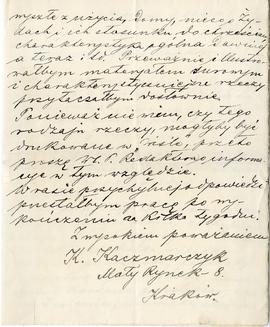 wyszłe z użycia, domy, nieco o Ży-
dach i ich stosunku do chrześcian,
charakterystyka ogólna dawniej
a teraz i t.d. Przeważnie illustro-
wałbym materjałem surowym
i charakterystyczniejsze rzeczy
przytaczałbym dosłownie.
Ponieważ nie wiem, czy tego
rodzaju rzeczy, mogłyby być
drukowane w "Wiśle", przeto
proszę W. P. Redaktora o informa-
cye w tym względzie.
W razie przychylnej odpowiedzi
przesłałbym pracę po wy-
kończeniu za kilka tygodni.
Z wysokiem poważaniem
K. Kaczmarczyk
Mały Rynek 8.
Kraków.